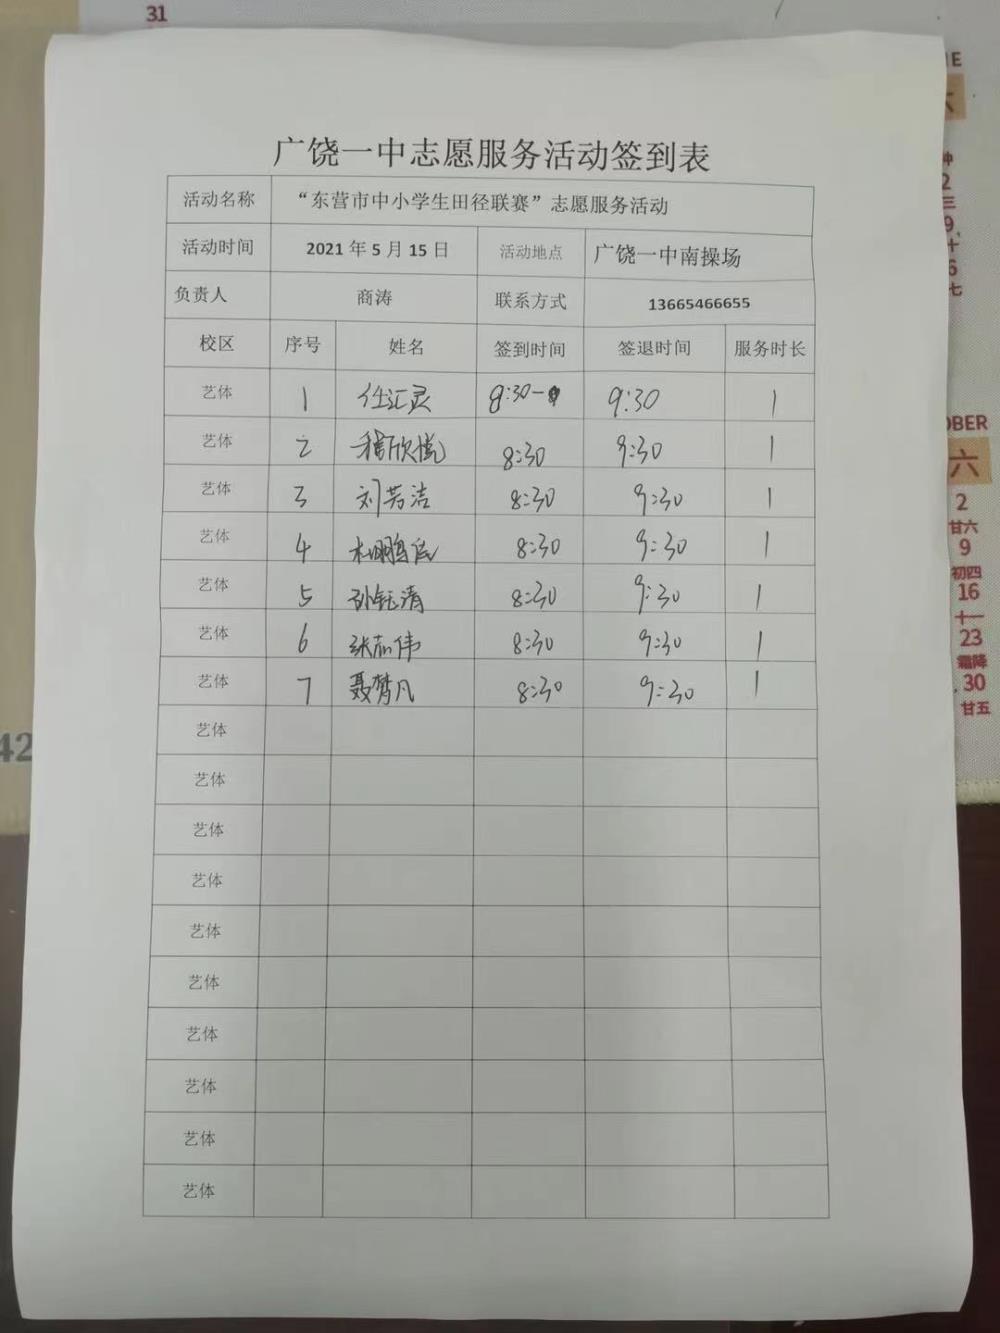 31
广饶一中志愿服务活动签到表
活动名称 “东营市中小学生田径联赛”志愿服务活动
活动时间 2021 年 5 月 15 日 活动地点 广饶一中南操场
负责人 商涛 联系方式 13665466655
校区 序号 姓名 签到时间 签退时间 服务时长
艺体 1 任汇灵 8:30 9:30 1
艺体 2 程欣悦 8:30 9:30 1
艺体 3 刘芳洁 8:30 9:30 1
艺体 4 8:30 9:30 1
艺体 5 孙钰清 8:30 9:30 1
艺体 6 张志伟 8:30 9:30 1
艺体 7 聂梦凡 8:30 9:30 1
艺体
艺体
艺体
艺体
艺体
艺体
艺体
艺体
艺体
艺体
42
OBER
六
2
廿六
9
初四
16
十一
23
霜降
30
廿五